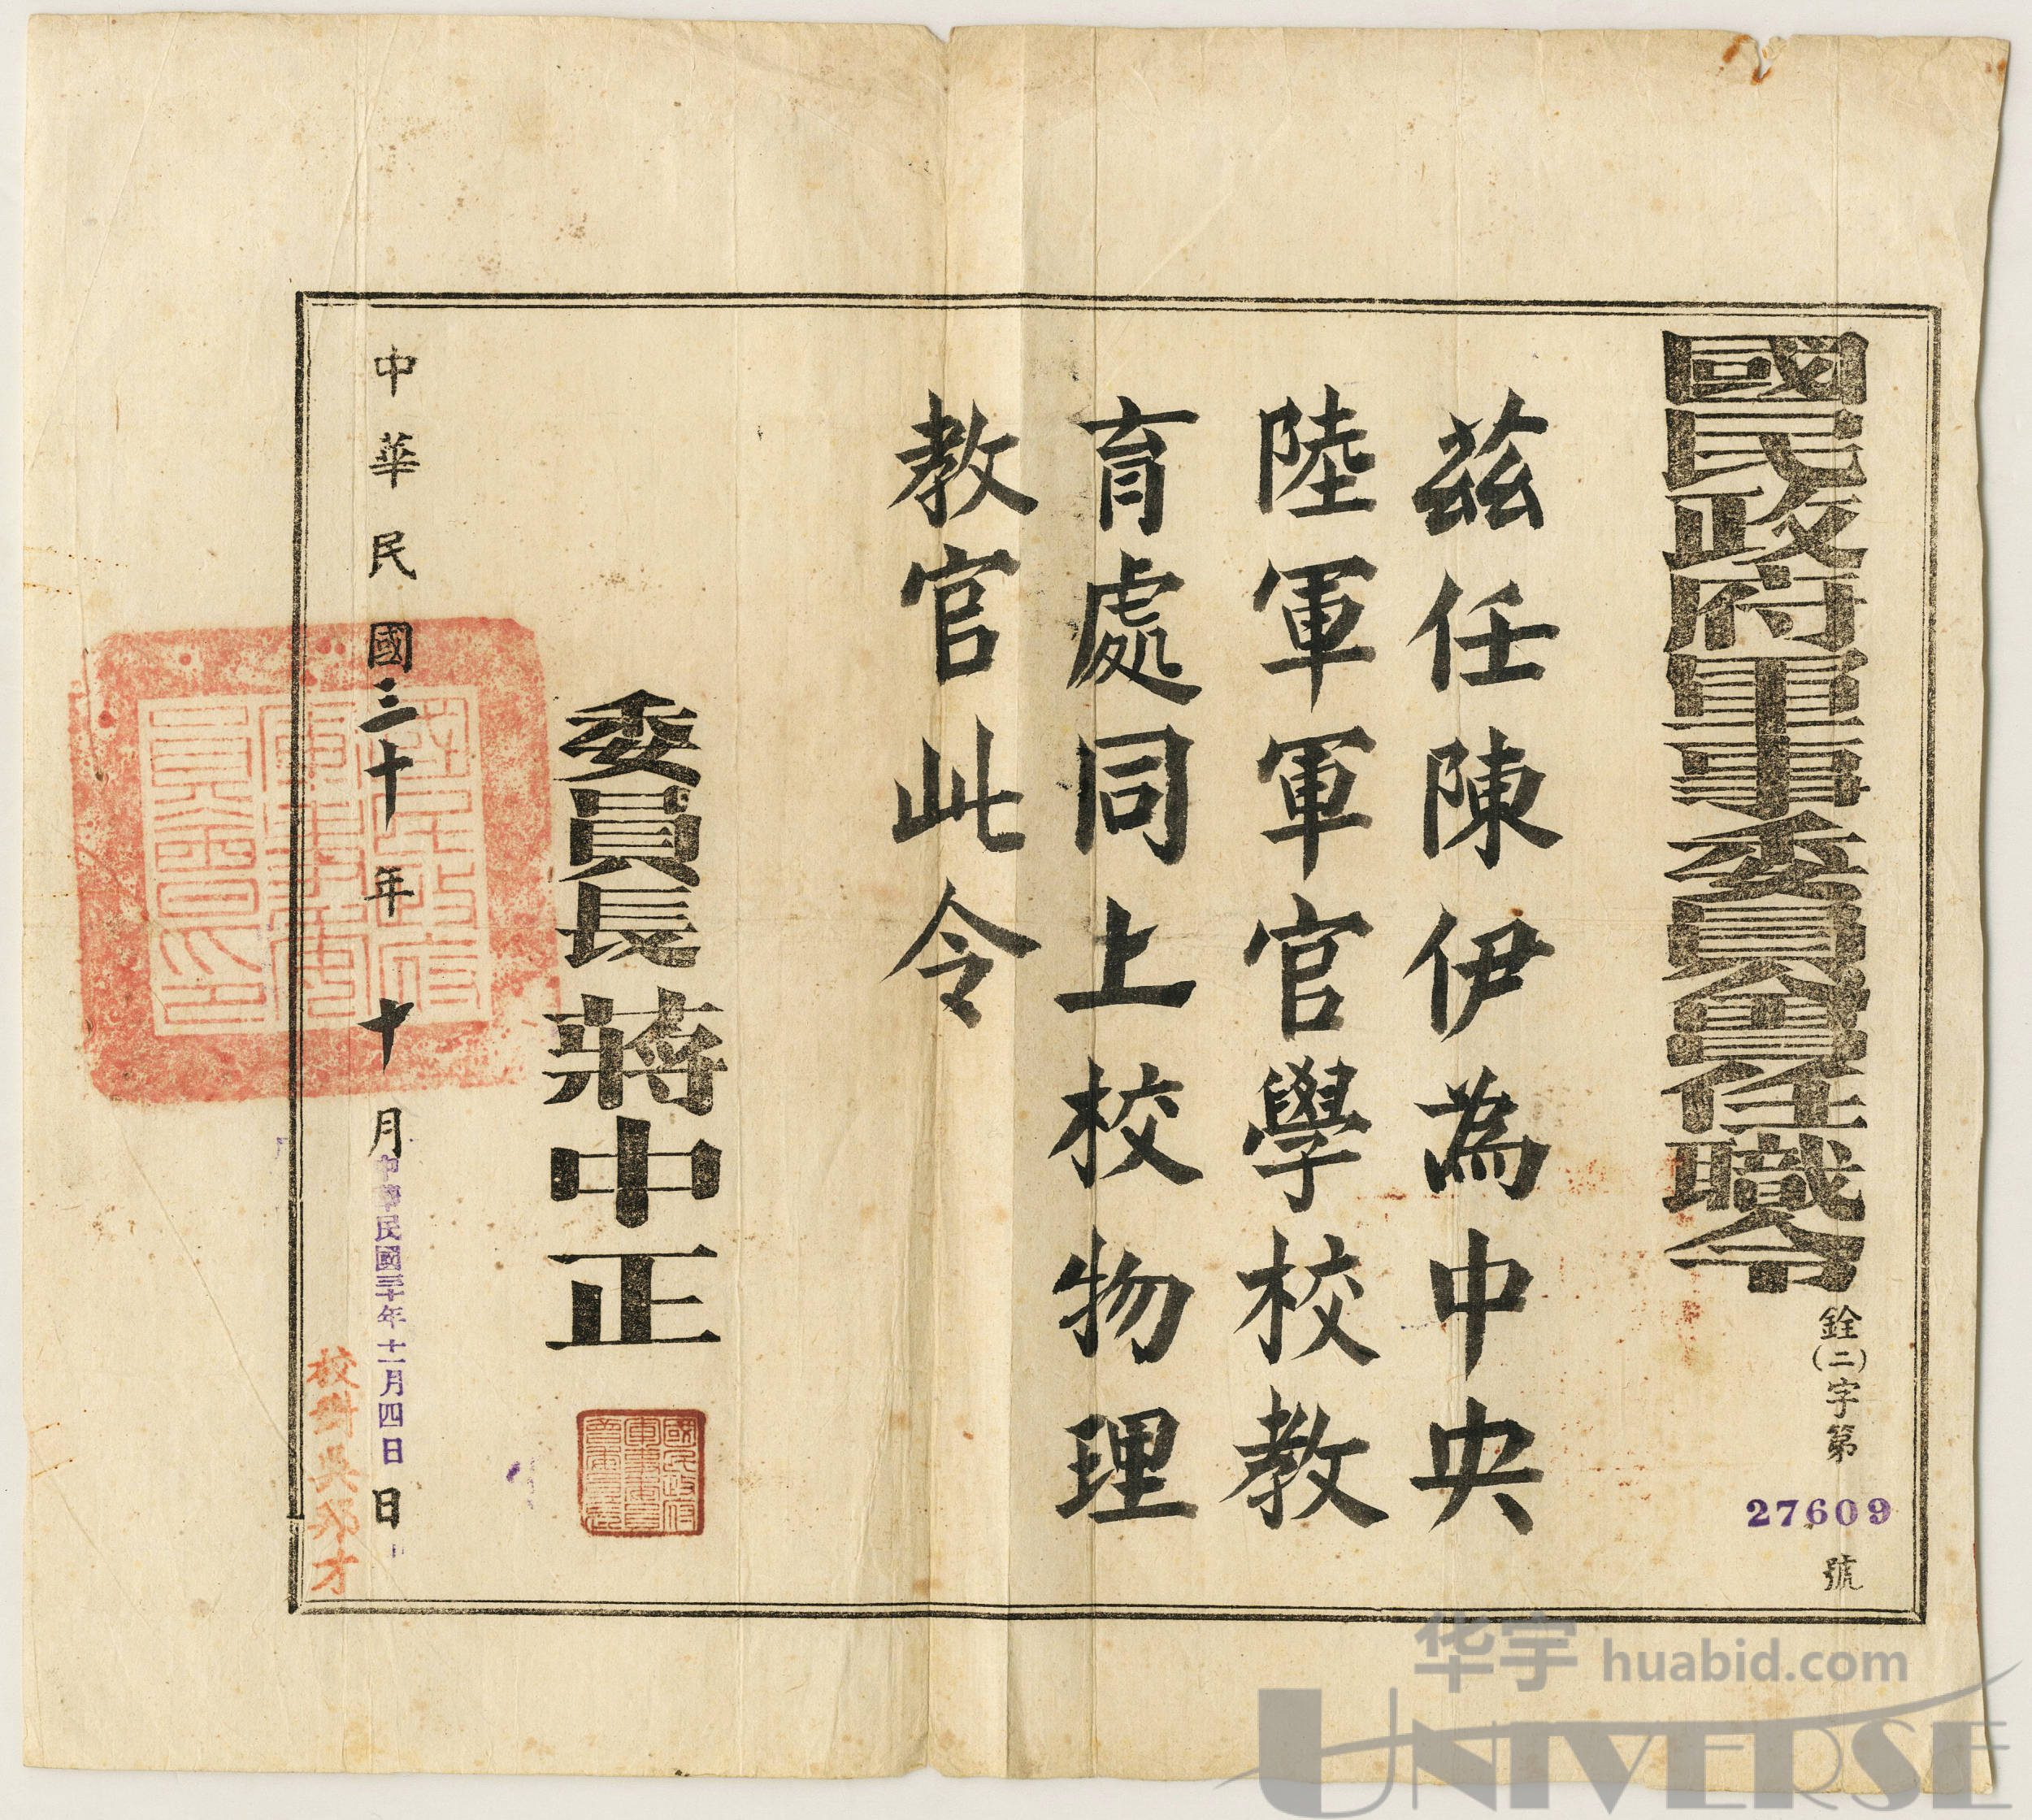 國民政府軍事委員會任職令
銓(二)字第27609號
茲任陳伊為中央
陸軍軍官學校教
育處同上校物理
教官此令
委員長蔣中正
國民政府
軍事委員
會委員長
中華民國三十年十月 日
中華民國三十年十一月四日
國民政府
軍事委
員會印
校對吳邦才
华宇 huabid.com
UNIVERSE